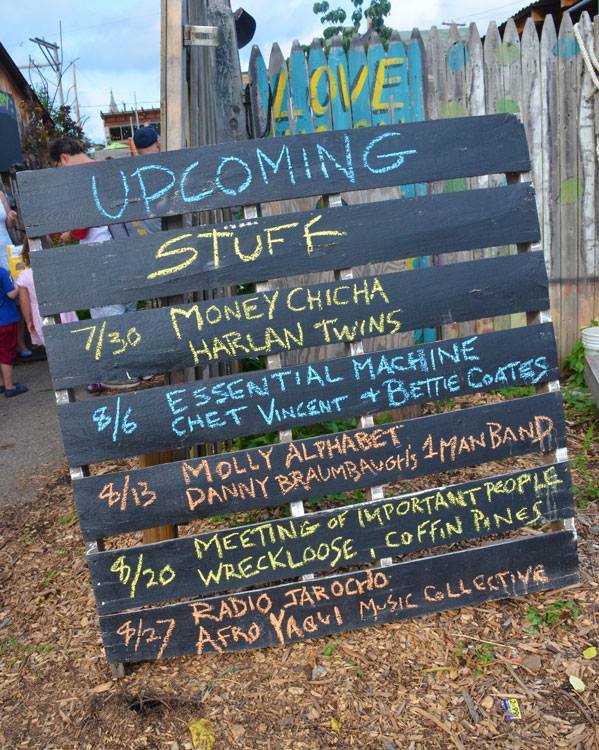 LOVE
UPCOMING
STUFF
7/30 MONEY CHICHA
HARLAN TWINS
8/6 ESSENTIAL MACHINE
CHET VINCENT & BETTIE COATES
8/13 MOLLY ALPHABET
DANNY BRAUMBAUGH'S 1 MAN BAND
8/20 MEETING OF IMPORTANT PEOPLE
WRECKLOOSE, COFFIN PINES
8/27 RADIO JAROCHO
AFRO YAQUI MUSIC COLLECTIVE